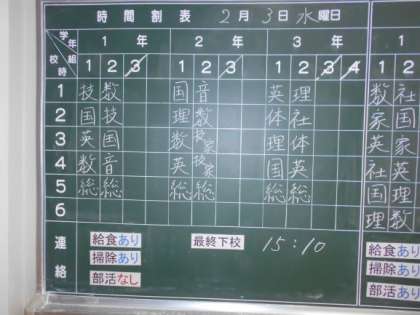 時間割表 2月3日水曜日
学年 1年 2年 3年 1
校時 組 1 2 3 1 2 3 1 2 3 4 1 2
1 技 数 国 音 英 理 数 社
2 国 技 理 数 体 社 家 国
3 英 国 数 技家 理 体 英 家
4 数 音 英 技家 国 英 社 英
5 総 総 総 総 総 総 国 理
6 理 数
連絡 給食あり 最終下校 15:10 給食あり
掃除あり 掃除あり
部活なし 部活あり